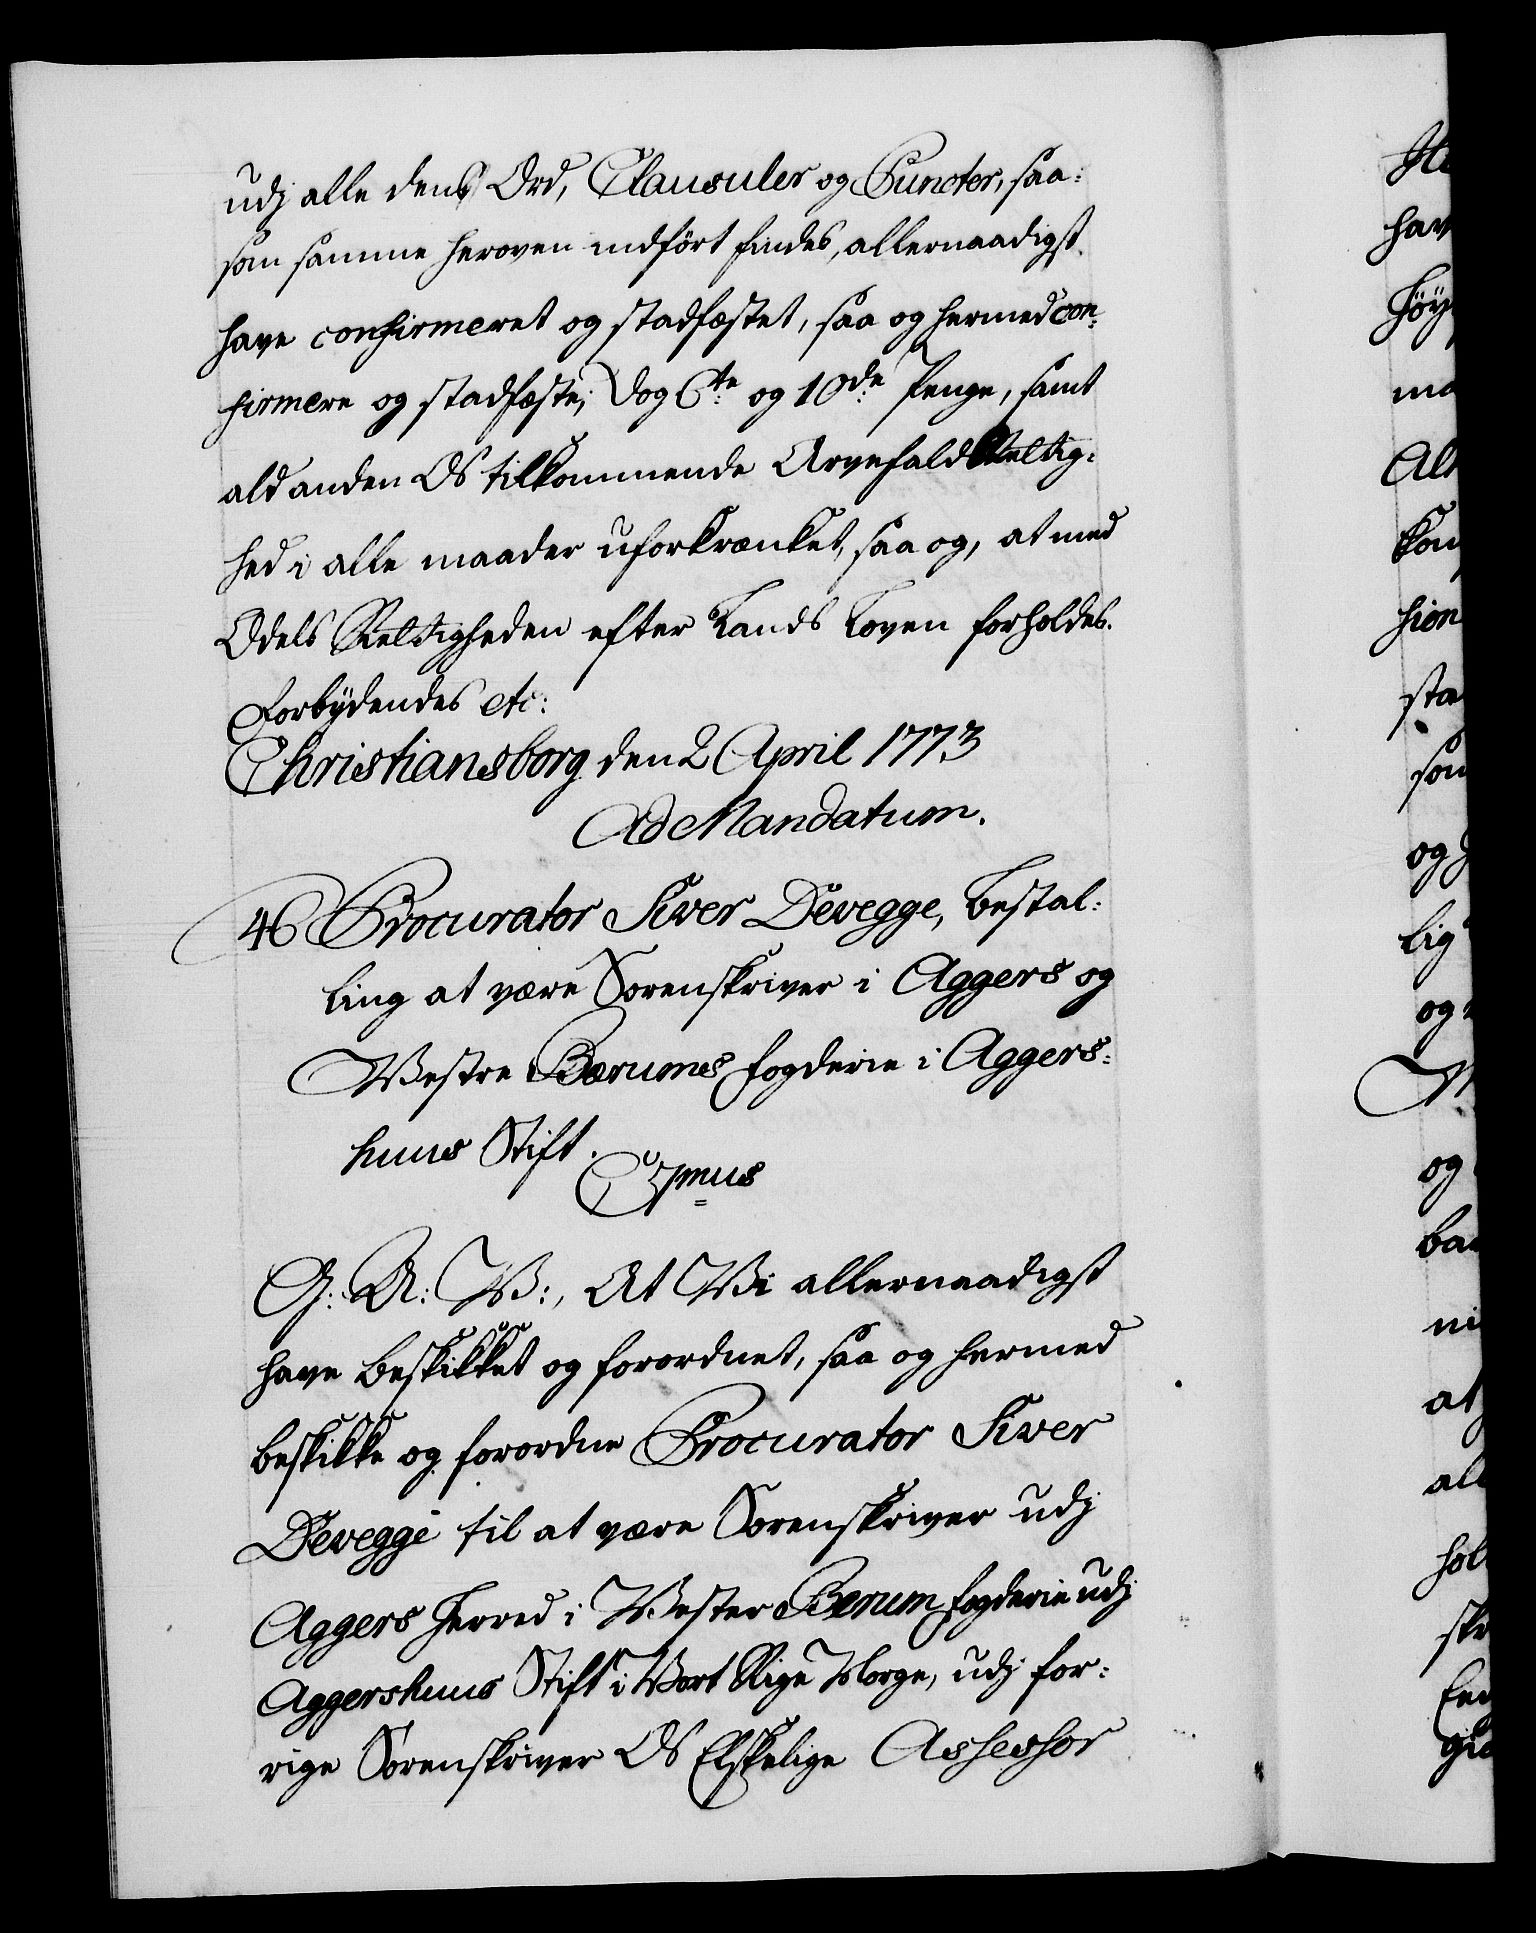 udj alle dens Ord, Clausuler og Puncter, saa-
som samme heroven indført findes, allernaadigst
have confirmeret og stadfæstet, saa og hermed con-
firmere og stadfæste, Dog 6te og 10de Penge, samt
ald anden Os tilkommende Arvefald Rettig-
hed i alle maader uforkrænket, saa og, at med
Odels Rettigheden efter Lands Loven forholdes.
Forbydendes etc:
Christiansborg den 2 April 1773
Ad Mandatum.
46 Procurator Siver Devegge, Bestal-
ling at være Sorenskriver i Aggers og
Westre Bærums Fogderie i Aggers-
huus Stift.
C 7mus
G: A: W:, At Wi allernaadigst
have beskikket og forordnet, saa og hermed
beskikke og forordne Procurator Siver
Devegge til at være Sorenskriver udj
Aggers Herred i Wester Berum Fogderie udj
Aggershuus Stift i Vort Rige Norge, udj for-
rige Sorenskriver Os Elskelige Assessor